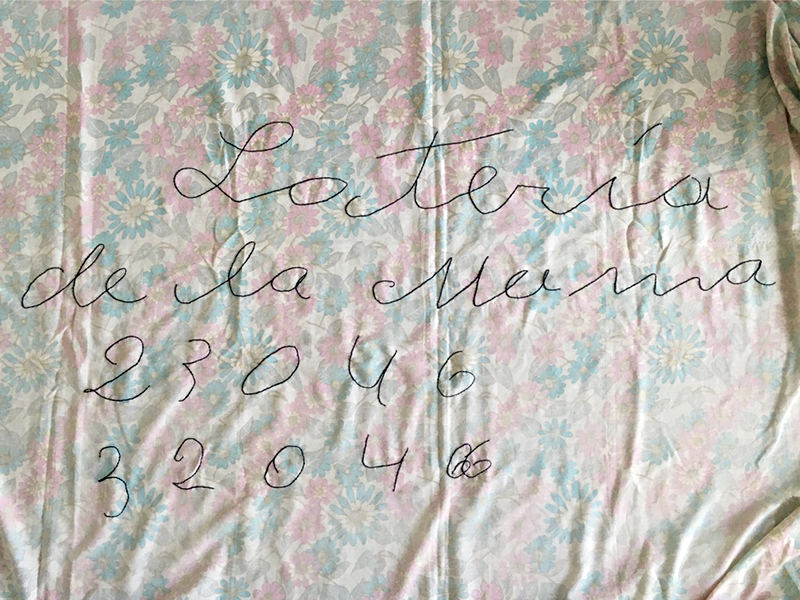 Lotería
de la Mama
2 3 0 4 6
3 2 0 4 6